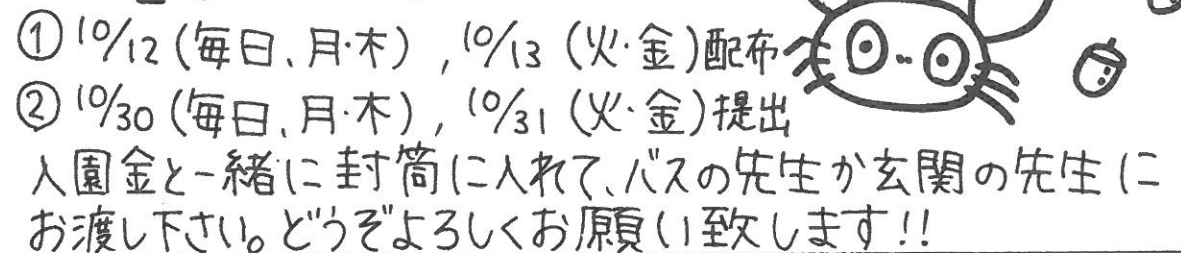 ① 10/12 (毎日、月·木) , 10/13 (火·金)配布
② 10/30 (毎日、月·木) , 10/31 (火·金)提出
入園金と一緒に封筒に入れて、バスの先生か玄関の先生に
お渡し下さい。どうぞよろしくお願い致します!!